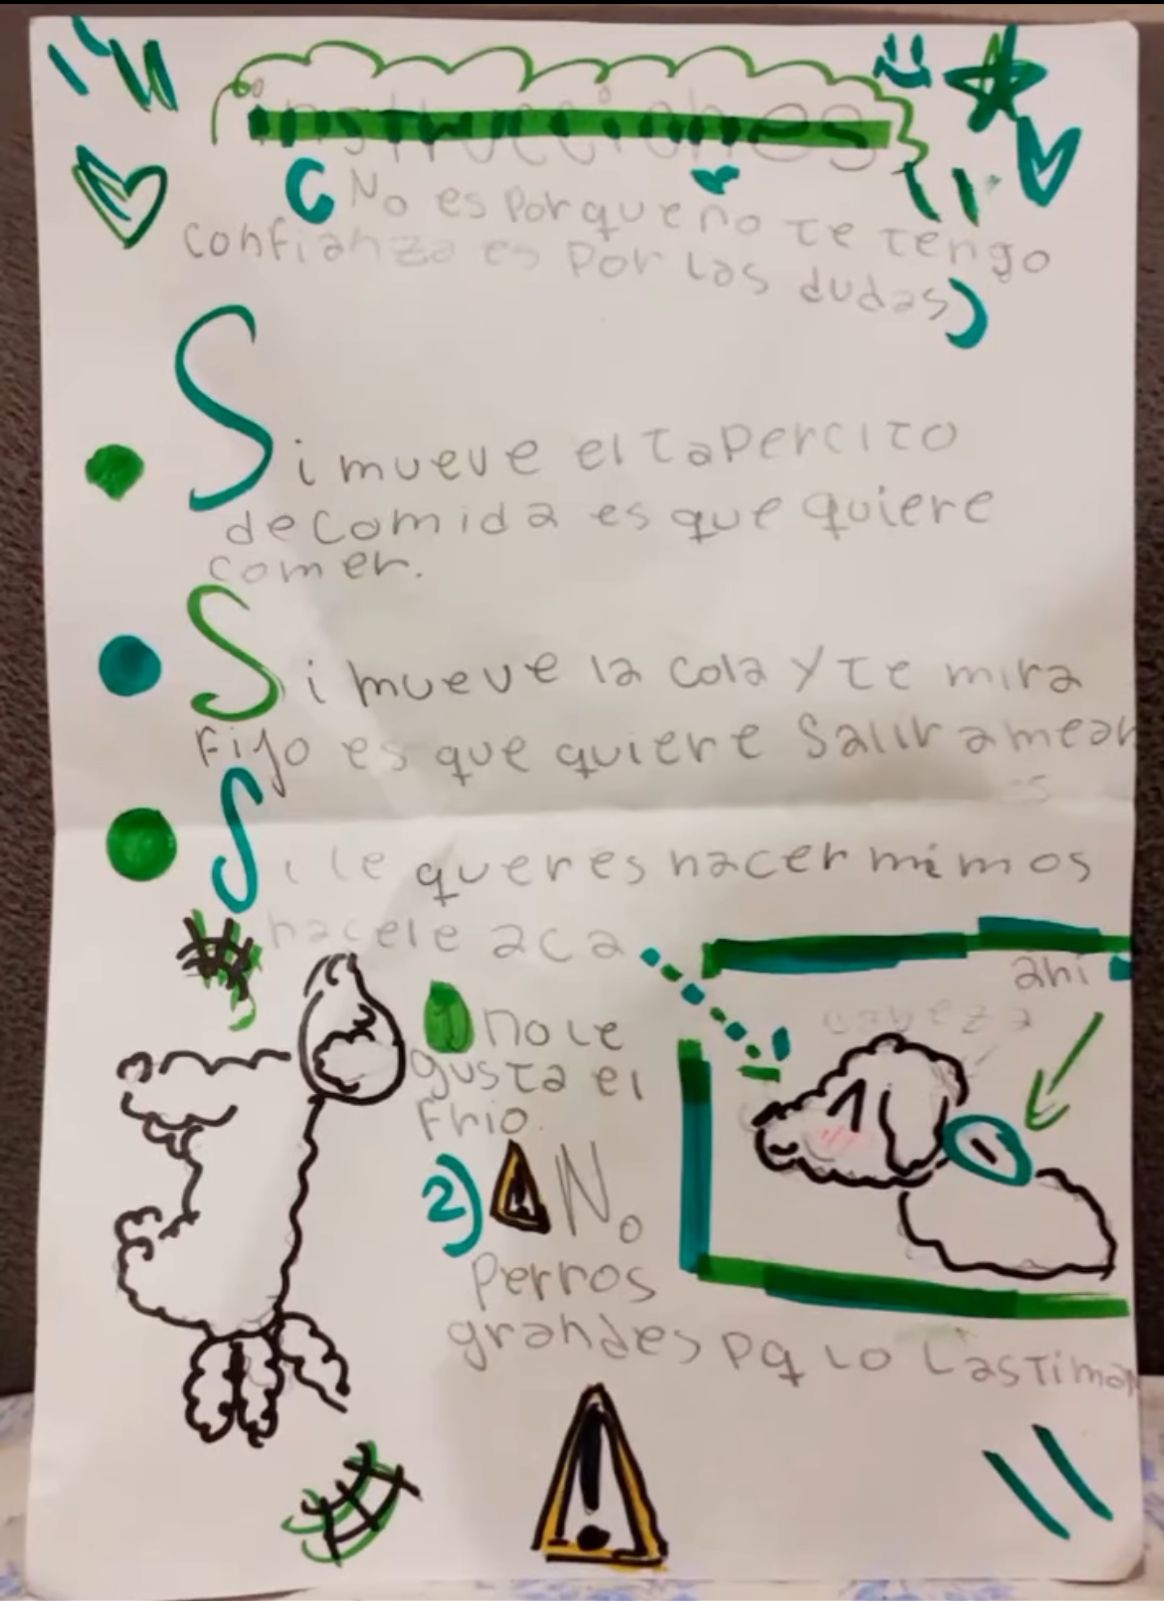 instrucciones
(No es porque no te tengo
confianza es por las dudas)
Si mueve el tapercito
de comida es que quiere
comer.
Si mueve la cola y te mira
fijo es que quiere salir a mear
Si le queres hacer mimos
hacele aca
ahi
cabeza
1) no le
gusta el
frio.
2) No
perros
grandes pq lo Lastiman